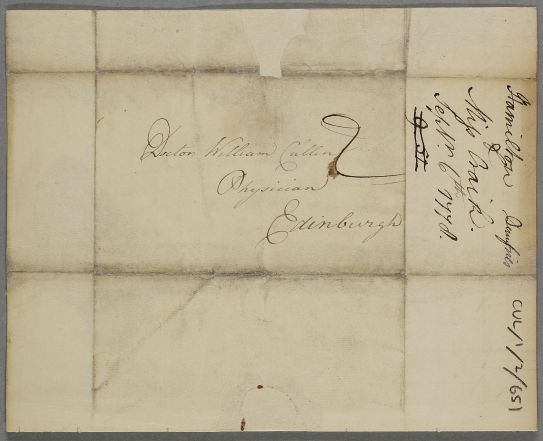 Doctor William Cullen
Physician
Edinburgh
2
Hamilton Dumfries
Miss Craik.
Septr. 6th 1778.
CUL/1/2/651